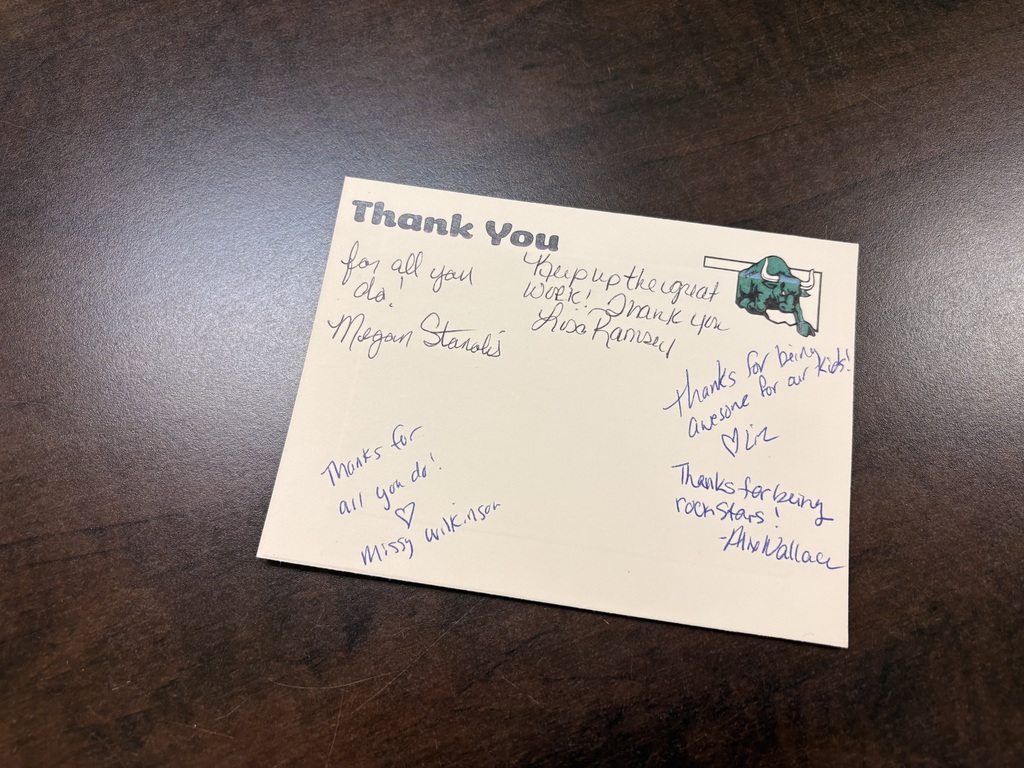 Thank You
for all you
do!
Megan
Keep up the great
work! Thank you
Lisa Ramsey
Thanks for being
awesome for our kids!
♡ Liz
Thanks for
all you do!
♡
Missy Wilkinson
Thanks for being
rockstars!
Wallace